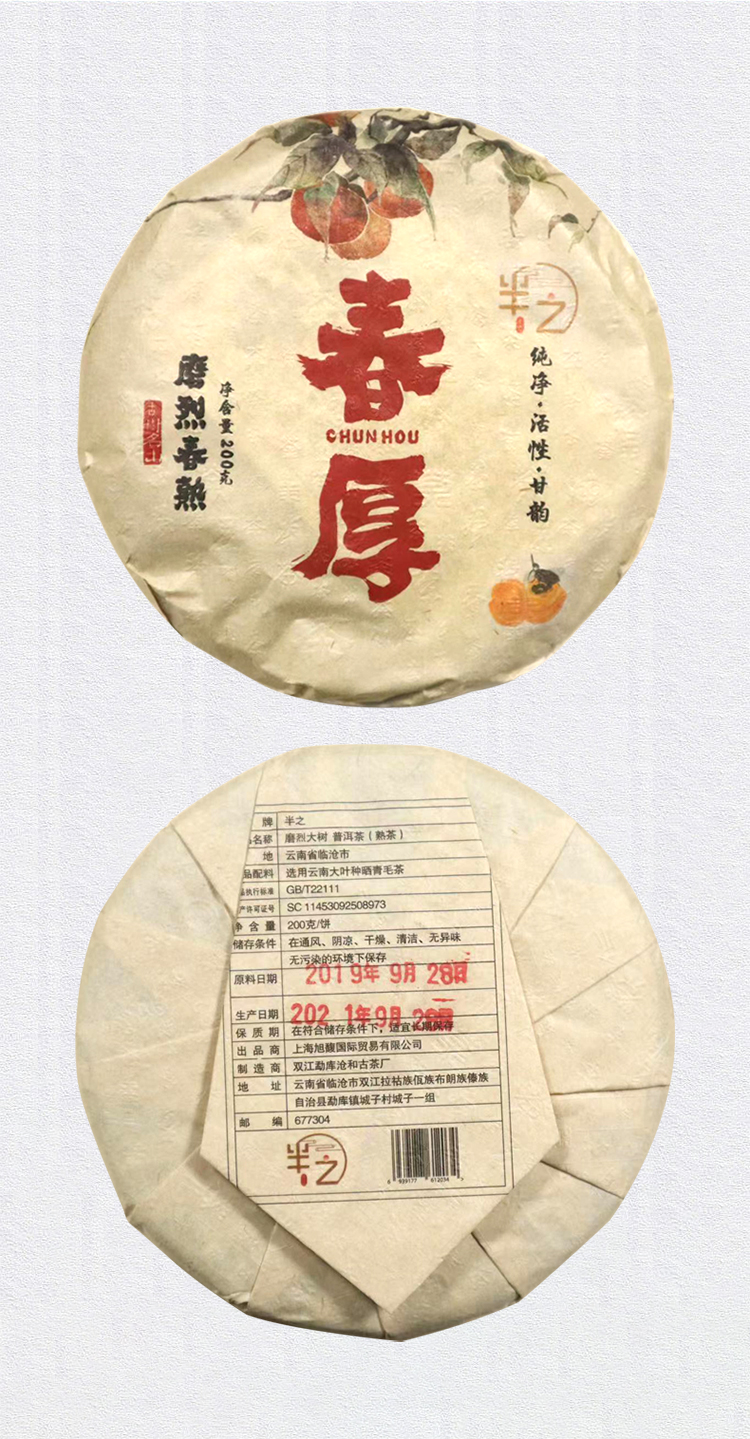 春
CHUN HOU
厚
半之
纯净·活性·甘韵
净含量 200克
磨烈春熟
古树名山
牌 半之
品名称 磨烈大树 普洱茶（熟茶）
地 云南省临沧市
品配料 选用云南大叶种晒青毛茶
品执行标准 GB/T22111
产许可证号 SC 11453092508973
净含量 200克/饼
储存条件 在通风、阴凉、干燥、清洁、无异味
无污染的环境下保存
原料日期 2019年 9月 28日
生产日期 2021年9月28日
保质期 在符合储存条件下，适宜长期保存
出品商 上海旭馥国际贸易有限公司
制造商 双江勐库沧和古茶厂
地址 云南省临沧市双江拉祜族佤族布朗族傣族
自治县勐库镇城子村城子一组
邮编 677304
半之
6 939177 612034